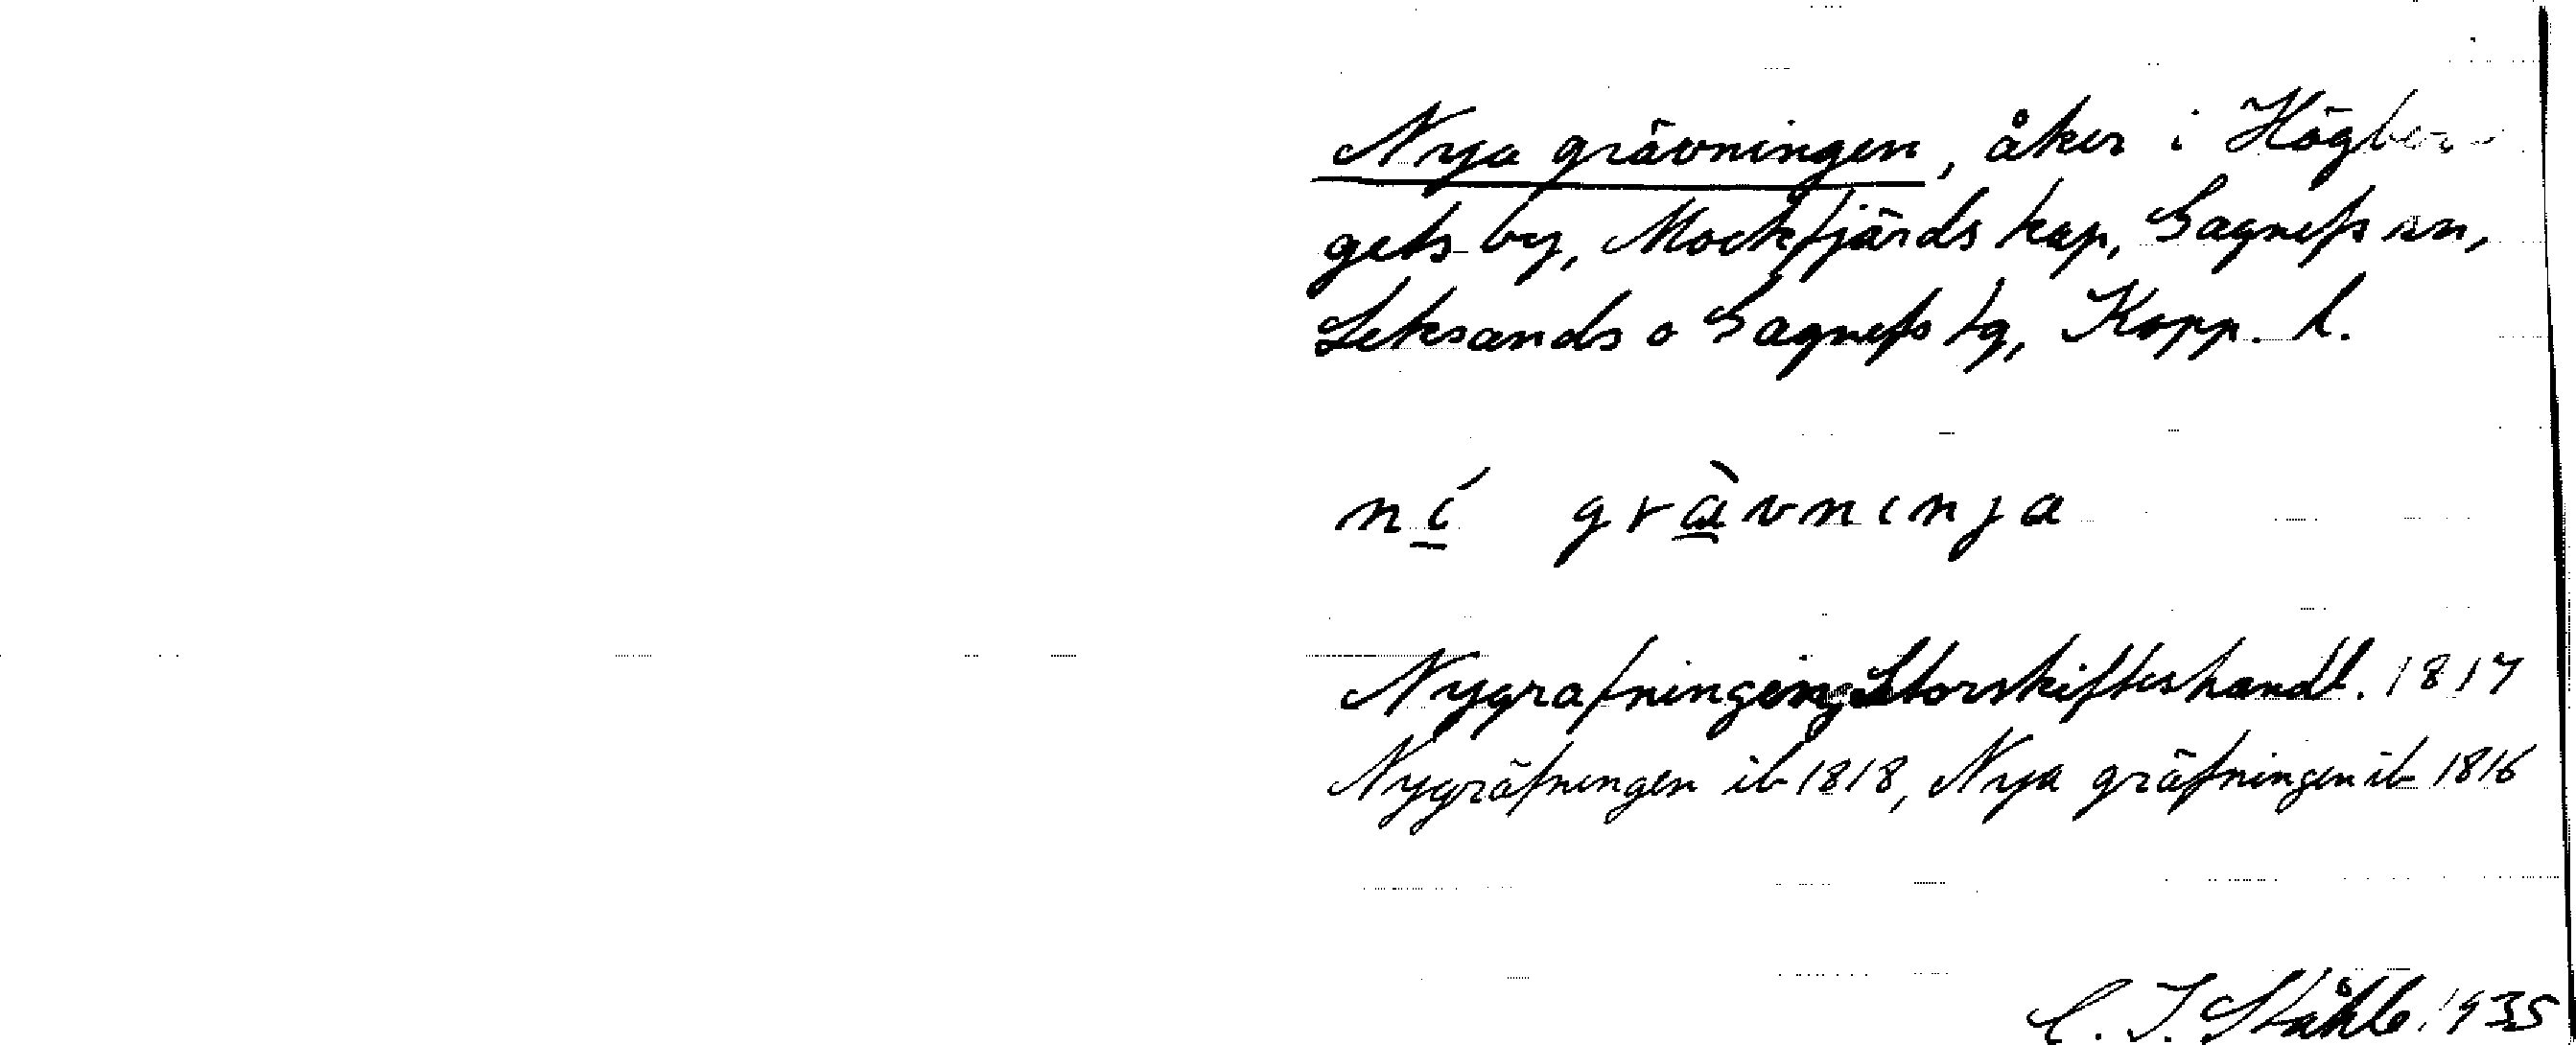 Nya grävningen, åker i Högber-
gets by, Mockfjärds kap, Gagnefs sn,
Leksands o Gagnefs tg, Kopp. l.
ní græ̀vnınȷa
Nygrafningen Storskifteshandl. 1817
Nygräfningen ib 1818, Nya gräfningen ib 1816
C. I. Ståhle 1935